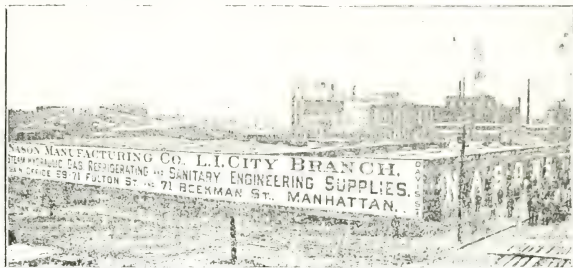 NASON MANUFACTURING CO. L.I.CITY BRANCH.
STEAM HYDRAULIC GAS REFRIGERATING AND SANITARY ENGINEERING SUPPLIES.
MAIN OFFICE 69-71 FULTON ST AND 71 BEEKMAN ST., MANHATTAN.
NASON